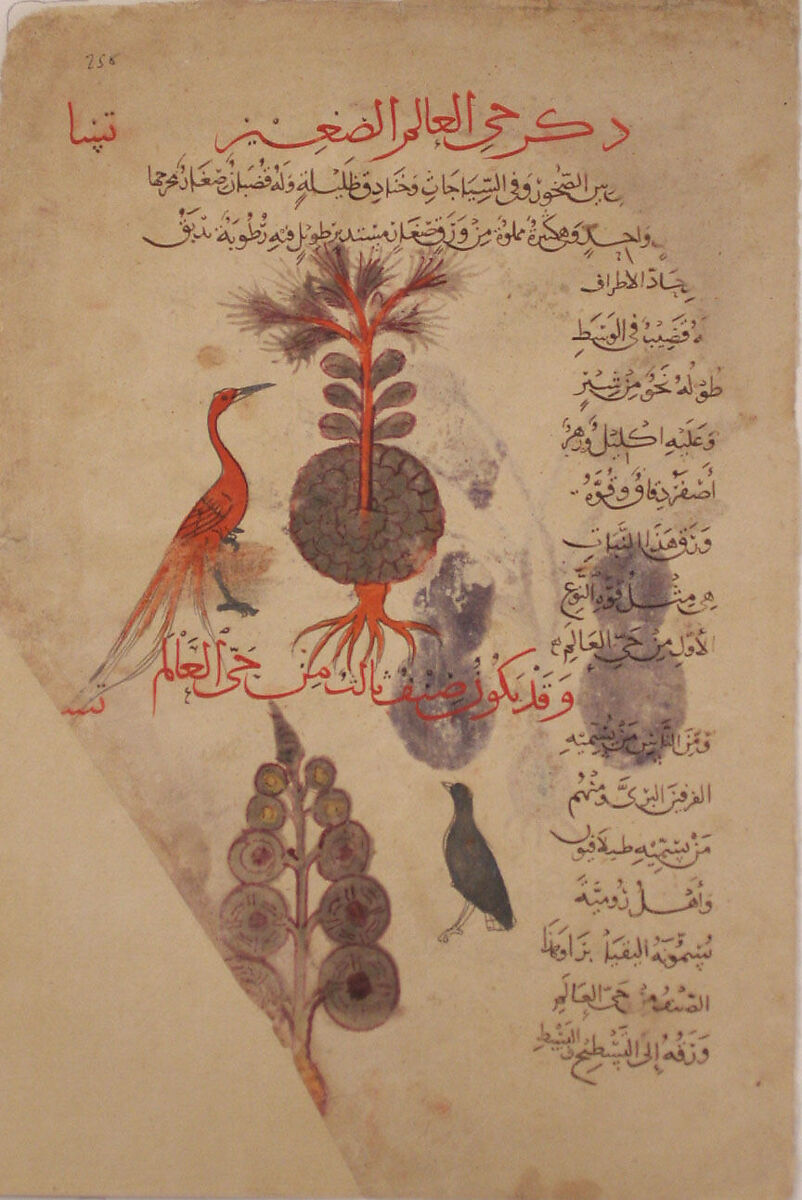 ذكر حي العالم الصغير
بين الصخور وفي السياجات وخنادق ظليلة وله قضبان صغار مخرجها
واحد وهي كثيرة مملوة من ورق صغار مستدير طويل فيه رطوبة تدبق
حاد الاطراف
وله قضيب في الوسط
طوله نحو من شبر
وعليه اكليل وزهر
أصفر دقاق وقوة
ورق هذا النبات
هي مثل قوة النوع
الأول من حي العالم
وقد يكون صنف ثالث من حي العالم
ومن الناس من يسميه
البري ومنهم
من يسميه
وأهل رومية
يسمونه وهذا
الصنف من حي العالم
ورقه إلى التسطيح